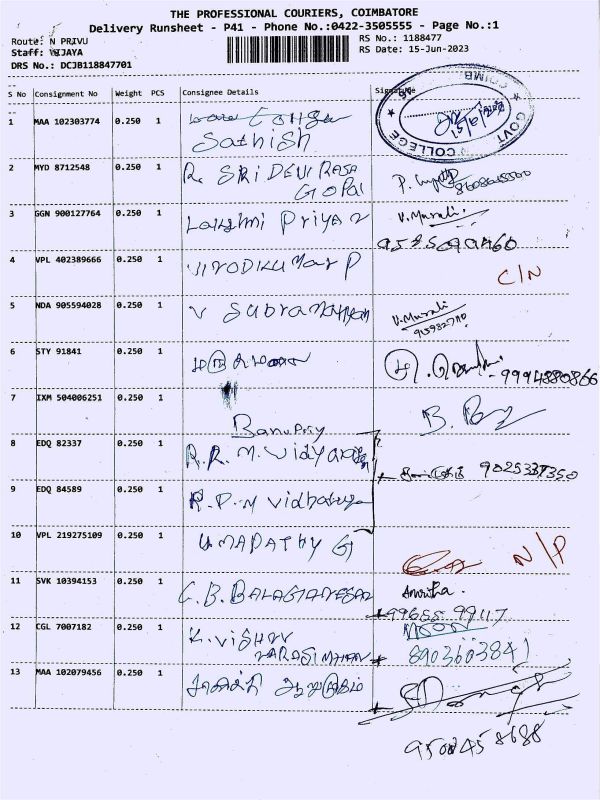 THE PROFESSIONAL COURIERS, COIMBATORE
Delivery Runsheet - P41 - Phone No.:0422-3505555 - Page No.:1
Route: N PRIVU
RS No.: 1188477
Staff: VIJAYA
RS Date: 15-Jun-2023
DRS No.: DCJB118847701
S No Consignment No Weight PCS Consignee Details Signature
GOVT COLLEGE COIMB
1 MAA 102303774 0.250 1
Sathish
2 MYD 8712548 0.250 1 R. SRI DEVI RAJA
GOPAL
3 GGN 900127764 0.250 1 Lakshmi Priya V. Murali.
4 VPL 402389666 0.250 1 VINODKUMAR P C/N
5 NDA 905594028 0.250 1 V Subramaniyam V. Murali
6 STY 91841 0.250 1 9994880866
7 IXM 504006251 0.250 1
BanuPriy B.
8 EDQ 82337 0.250 1 R.R. M. Vidya
9025337350
9 EDQ 84589 0.250 1 R.P. M
10 VPL 219275109 0.250 1 UMAPATHY G N/P
11 SVK 10394153 0.250 1 C.B. BALAGANESAN Amritha.
99655 99117
12 CGL 7007182 0.250 1 K. VISHNU
NARASIMHAN 8903603841
13 MAA 102079456 0.250 1 ஆறுமுகம்